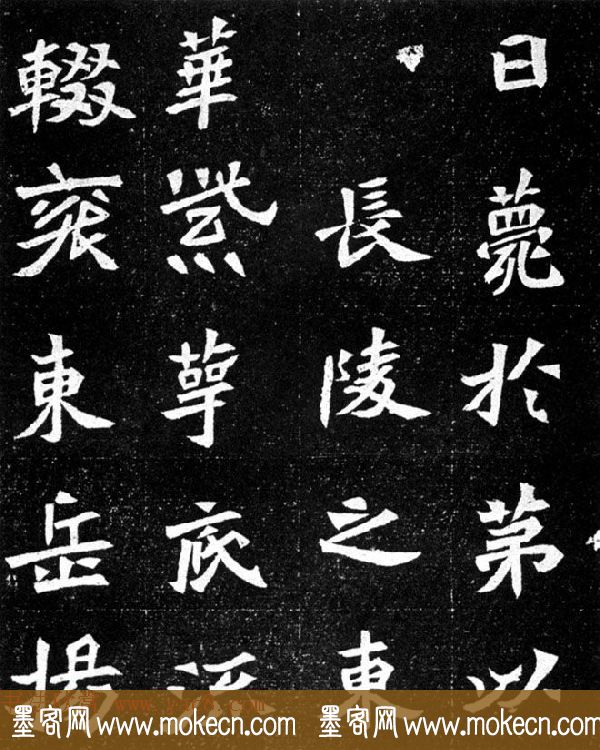 日薨於第以
長陵之東
華萼
輟衮東岳揚
墨客网 www.mokecn.com 墨客网 www.mokecn.com